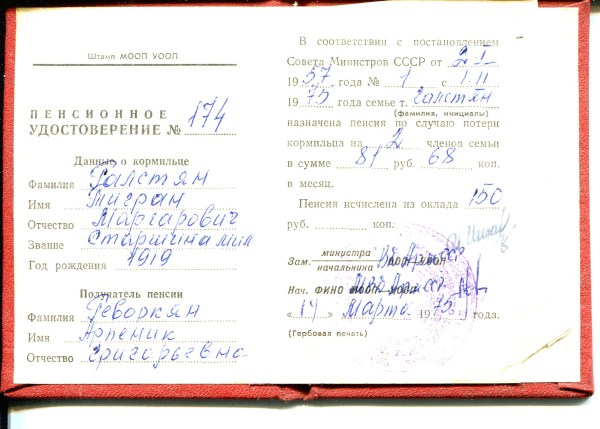 Штамп МООП УООП
ПЕНСИОННОЕ
УДОСТОВЕРЕНИЕ № 174
Данные о кормильце
Фамилия Галстян
Имя Тигран
Отчество Маргарович
Звание Старшина мил.
Год рождения 1919
Получатель пенсии
Фамилия Геворкян
Имя Арпеник
Отчество Григорьевна
В соответствии с постановлением
Совета Министров СССР от 2 I
1957 года № 1 с 1.II
1975 года семье т. Галстян
(фамилия, инициалы)
назначена пенсия по случаю потери
кормильца на 2 членов семьи
в сумме 81 руб. 68 коп.
в месяц.
Пенсия исчислена из оклада 150
руб. коп.
министра
Зам. ВД Арм ССР
начальника
Нач. ФИНО МООП МВД Арм ССР
«14» Марта 1975 года.
(Гербовая печать)